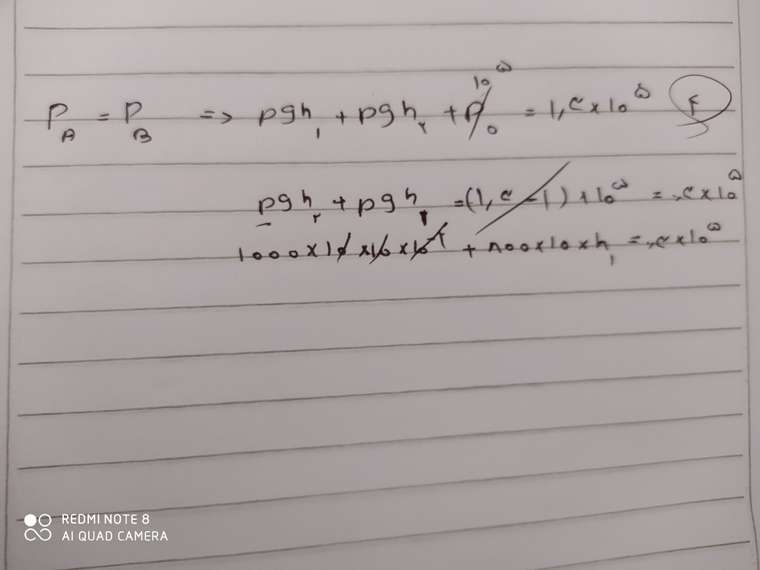 P_A = P_B => ρgh₁ + ρgh₂ + P₀ 10^۵ = 1,۳×10^۵ ۴
ρgh₂ + ρgh₁ = (1,۳ - 1) × 10^۵ = ۰,۳×10^۵
1000×10×10×10^-۲ + ۸00×10×h₁ = ۰,۳×10^۵
REDMI NOTE 8
AI QUAD CAMERA